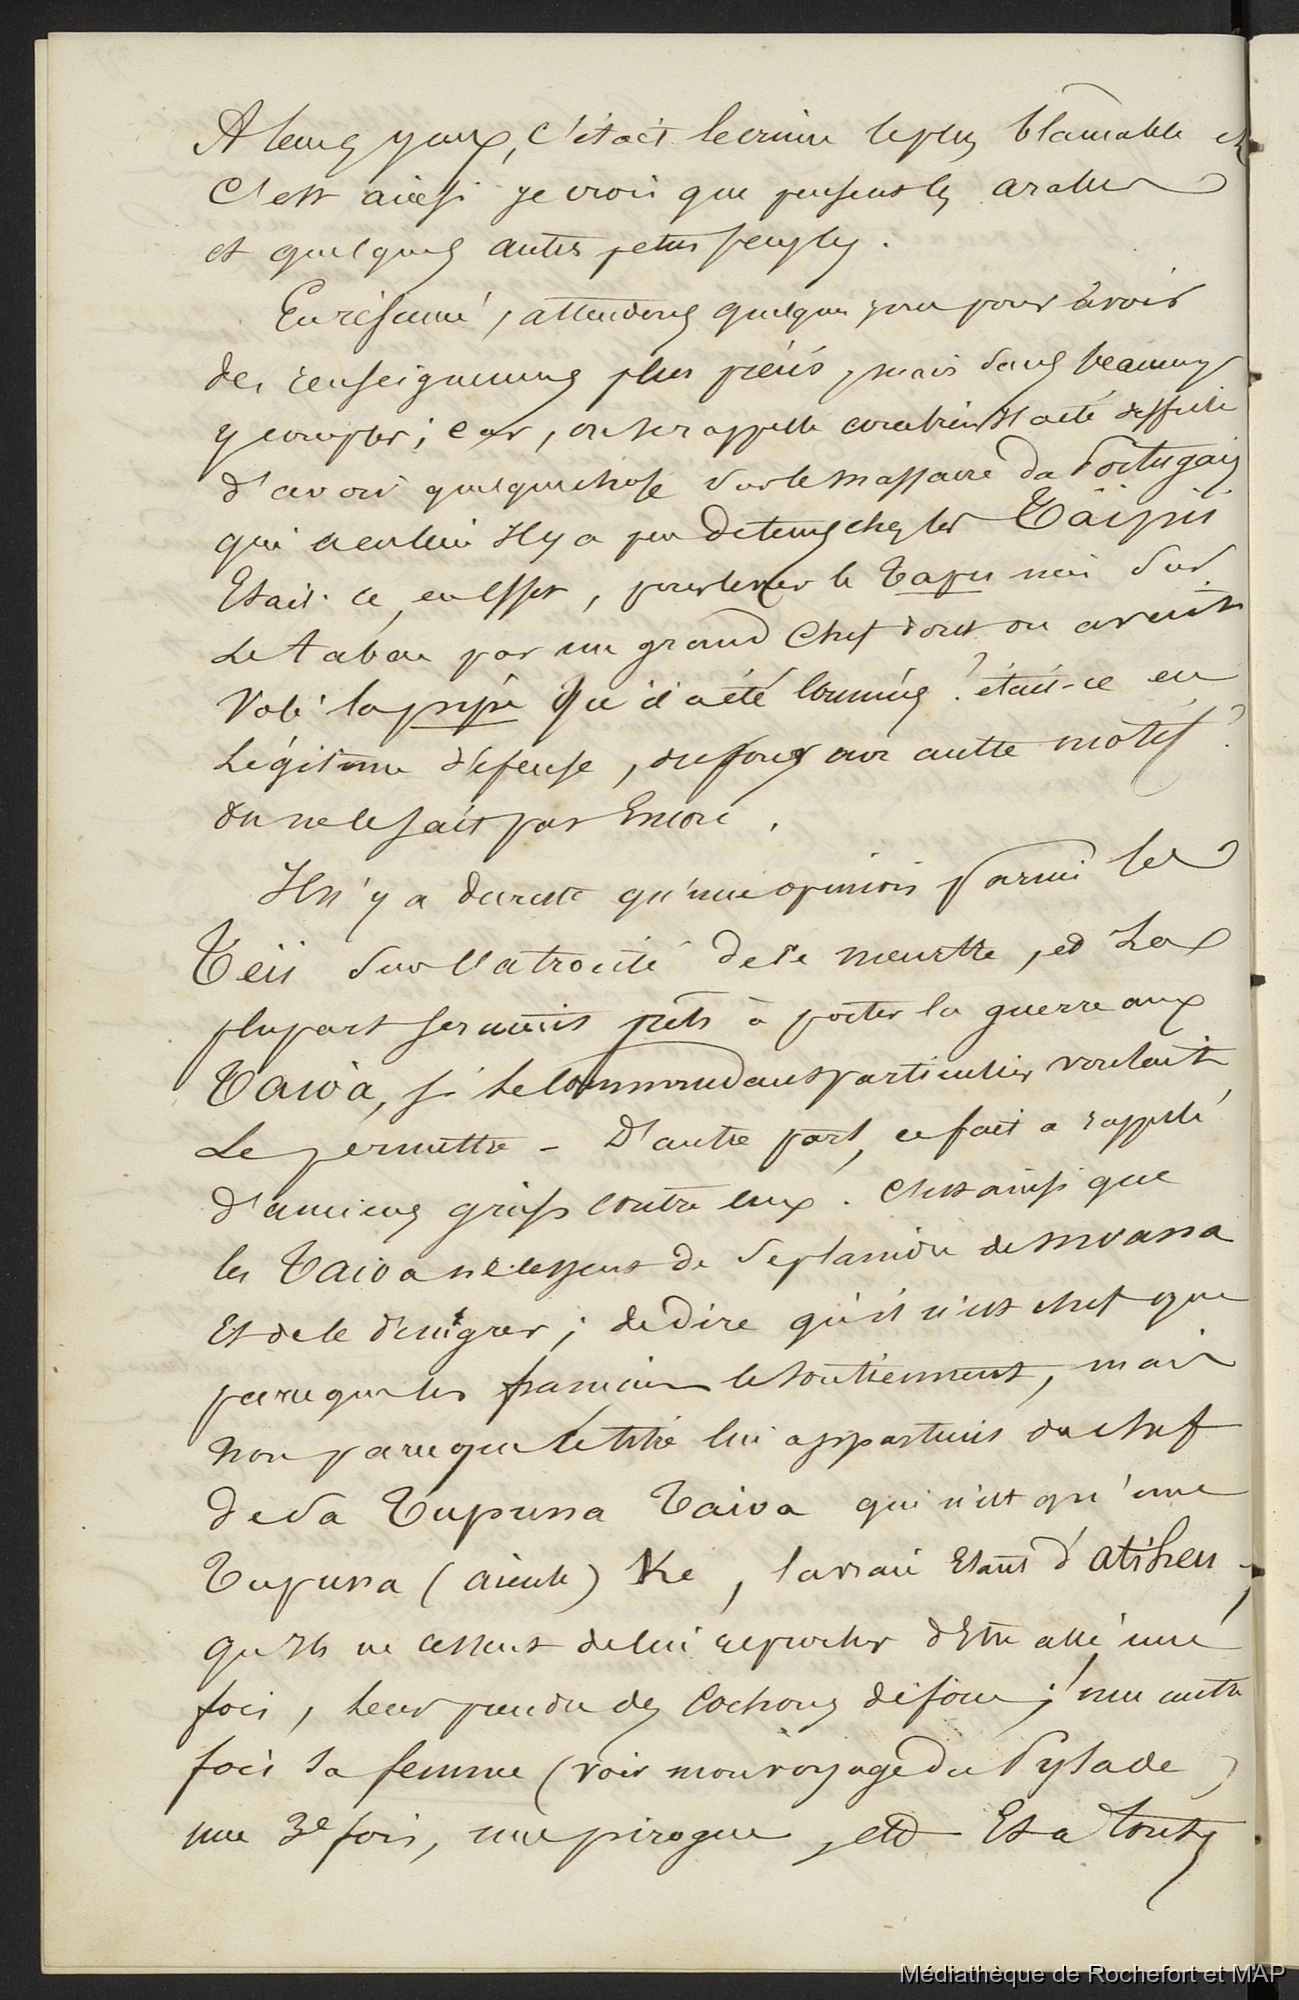 A leurs yeux, c'était le crime le plus blamable et
C'est ainsi je crois que pensent les arabes
et quelques autres petits peuples.
En résumé, attendons quelques jours pour avoir
des renseignemens plus précis, mais sans beaucoup
y compter; car, on se rappelle combien Il a été difficile
d'avoir quelque chose sur le massacre du Portugais
qui a eu lieu Il y a peu de tems chez les Tàïpis
Etait-ce, en effet, pour lever le Tapu mis sur
Le tabac par un grand Chef dont on avait
Volé la pipe qu'il a été commis? était-ce en
Légitime défense, ou pour un autre motif?
On ne le sait pas Encore.
Il n'y a du reste qu'une opinion parmi les
Teii sur l'atrocité de ce meurtre, et La
plupart seraient prêts à porter la guerre aux
Taioa, si Le Commandant particulier voulait
Le permettre - D'autre part, ce fait a rappelé
d'anciens griefs contre eux. C'est ainsi que
les Taioa ne cessent de se plaindre de Moana
Et de le dénigrer; de dire qu'il n'est chef que
parce que les français le soutiennent, mais
non parce que le titre lui appartient du chef
de sa Tupuna Taioa qui n'est qu'une
Tupuna (aieule) Ke, la vraie Etant d'atiheu,
qu'Ils ne cessent de lui reprocher d'Etre allé, une
fois, leur prendre des Cochons de force; une autre
fois sa femme (voir mon voyage du Pylade)
une 3e fois, une pirogue, etc Et a toutes
Médiathèque de Rochefort et MAP